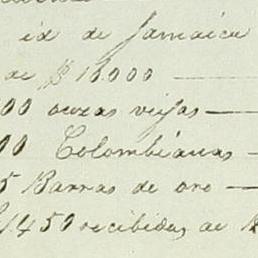 id de Jamaica
de $ 18.000
00 onzas viejas
00 Colombianas
5 Barras de oro
1450 recibidas de